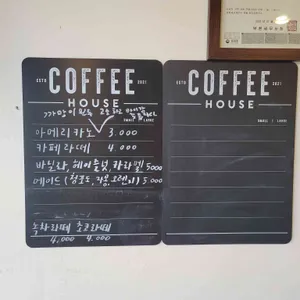 ESTD 2021
COFFEE
HOUSE
SMALL / LARGE
아메리카노 3.000
카페라떼 4.000
바닐라, 헤이즐넛, 카라멜 5000
에이드 (청포도, 자몽, 오렌지) 5000
녹차라떼 초코라떼
4,000 4,000
ESTD 2021
COFFEE
HOUSE
SMALL / LARGE